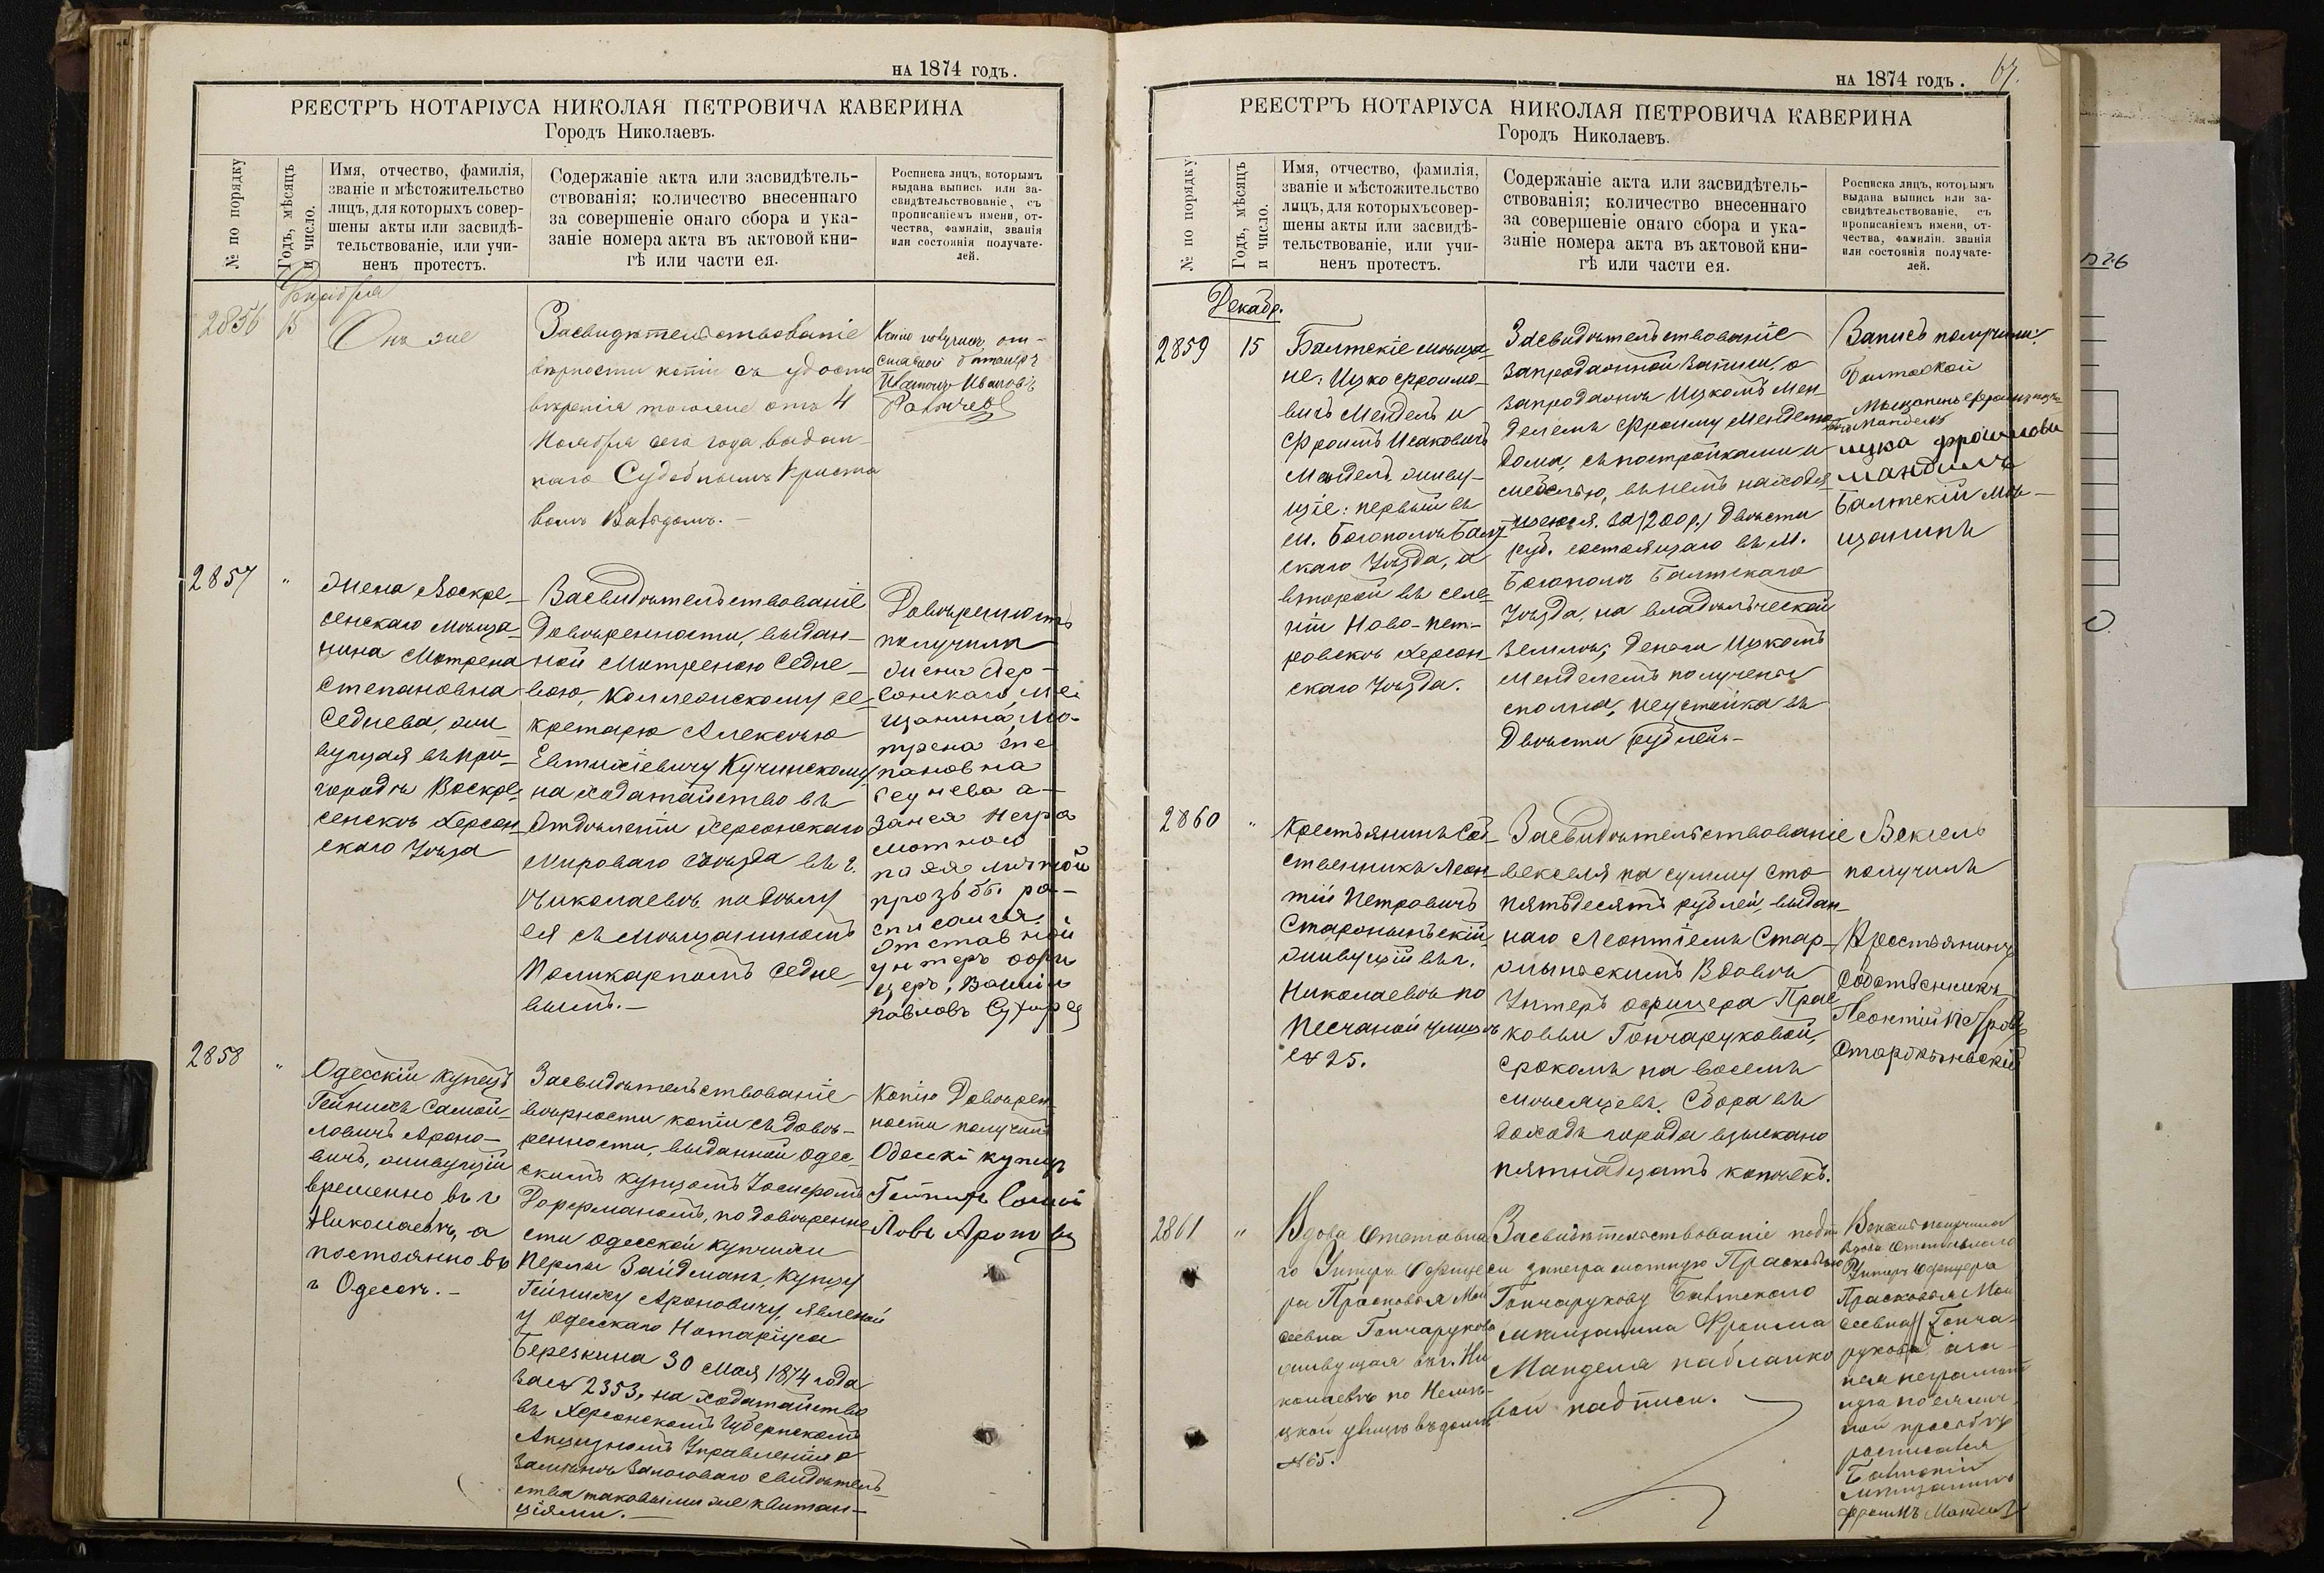 на 1874 годъ.
РЕЕСТРЪ НОТАРІУСА НИКОЛАЯ ПЕТРОВИЧА КАВЕРИНА
Городъ Николаевъ.
№ по порядку
Годъ, мѣсяцъ
и число.
Имя, отчество, фамилія,
званіе и мѣстожительство
лицъ, для которыхъ совер-
шены акты или засвидѣ-
тельствованіе, или учи-
ненъ протестъ.
Содержаніе акта или засвидѣтель-
ствованія; количество внесеннаго
за совершеніе онаго сбора и ука-
заніе номера акта въ актовой кни-
гѣ или части ея.
Росписка лицъ, которымъ
выдана выпись или за-
свидѣтельствованіе, съ
прописаніемъ имени, от-
чества, фамиліи, званія
или состоянія получате-
лей.
Декабря
2856
15
Онъ же
Засвидѣтельствованіе
вѣрности копіи съ удосто
вѣренія тогоже отъ 4
Ноября сего года выдан-
наго Судебнымъ Приста
вомъ
Копію получилъ от-
ставной
Иванъ Ивановъ
2857
"
Жена Воскре-
сенскаго мѣща-
нина Мотрена
Степановна
Седнева, жи
вущая въ при-
городѣ Воскре-
сенскѣ Херсон-
скаго Уѣзда
Засвидѣтельствованіе
Довѣренности, выдан-
ной Мотреною Седне-
вою, Коллежскому се-
кретарю Алексѣю
Евтихіевичу Кучинскому,
на ходатайство въ
Отдѣленіи Херсонскаго
Мироваго съѣзда въ г.
Николаевѣ по дѣлу
ея съ мѣщаниномъ
Поликарпомъ Седне-
вымъ.-
Довѣренность
получила
жена Хер-
сонскаго ме-
щанина, Мо-
трена сте
пановна
седнева а-
занея негра
мотною
по яя личной
прозьбы ра-
списался
отставной
унтеръ офи
церъ, Василій
павловъ
2858
"
Одесскій купецъ
Гейнихъ Самой-
ловичъ Ароно-
вичъ, живущій
временно въ г
Николаевѣ, а
постоянно въ
г Одессѣ.-
Засвидѣтельствованіе
вѣрности копіи съ довѣ-
ренности, выданной Одес-
скимъ купцомъ Іосифомъ
Дорфманомъ, по довѣренно-
сти Одесской купчихи
Перлы Зайдманъ, купцу
Гейниху Ароновичу, явленой
у Одесскаго Нотаріуса
Березкина 30 Мая 1874 года
за № 2353, на ходатайство
въ Херсонскомъ Губернскомъ
Акцизномъ Управленіи о
замѣнѣ залоговаго свидѣтель-
ства таковыми же квитан-
ціями.-
Копію Довѣрен-
ности получилъ
Одескі купец
Гейних Самои
лов Аронов
на 1874 годъ.
67.
РЕЕСТРЪ НОТАРІУСА НИКОЛАЯ ПЕТРОВИЧА КАВЕРИНА
Городъ Николаевъ.
№ по порядку
Годъ, мѣсяцъ
и число.
Имя, отчество, фамилія,
званіе и мѣстожительство
лицъ, для которыхъ совер-
шены акты или засвидѣ-
тельствованіе, или учи-
ненъ протестъ.
Содержаніе акта или засвидѣтель-
ствованія; количество внесеннаго
за совершеніе онаго сбора и ука-
заніе номера акта въ актовой кни-
гѣ или части ея.
Росписка лицъ, которымъ
выдана выпись или за-
свидѣтельствованіе, съ
прописаніемъ имени, от-
чества, фамиліи, званія
или состоянія получате-
лей.
Декабр.
2859
15
Балтскіе мѣща-
не: Ицко Фроимо-
вичъ Мендель и
Фроимъ Исаковичъ
Мандель, живу-
щіе: первый въ
м. Богополѣ Балт-
скаго Уѣзда, а
второй въ селе-
ніи Ново-Пет-
ровскѣ Херсон-
скаго Уѣзда.
Засвидѣтельствованіе
запродажной записи, о
запродажѣ Ицкомъ Мен-
делемъ Фроиму Менделю
дома, съ постройками и
мебелью, въ немъ находя-
щеюся, за (200 р.) Двѣсти
руб. состоящаго въ м.
Богополѣ Балтскаго
Уѣзда, на владѣльческой
землѣ; деньги Ицкомъ
Менделемъ получены
сполна, неустойка въ
Двѣсти рублей.-
Запись получили:
Балтской
Мѣщанинъ Фроимъ
Мандель
ицка фроимови
мандилъ
Балтскій мѣ-
щанинъ
2860
"
Крестьянинъ Соб-
ственникъ Леон-
тій Петровичъ
живущій въ г.
Николаевѣ по
Песчаной улицѣ
№ 25.
Засвидѣтельствованіе
векселя на сумму сто
пятьдесятъ рублей, выдан-
наго Леонтіемъ Стар-
Вдовѣ
Унтеръ офицера Прас
ковьи Гончаруковой,
срокомъ на восемь
мѣсяцевъ. Сбора въ
доходъ города взыскано
пятнадцать копѣекъ.
Вексель
получилъ
Крестьянинъ
Собственникъ
Леонтій Петровъ
2861
"
Вдова Отставна
го Унтеръ Офице
ра Прасковья Мои
сеевна Гончарукова
живущая въ г. Ни
колаевѣ по Немѣ-
цкой улицѣ въ домѣ
№ 65.
Засвидѣтельствованіе подпи
си за неграмотную Прасковью
Гончарукову Балтскаго
мѣщанина Фроима
Манделя на бланко
вой надписи.
Вексель получила
Вдова Отставнаго
Унтеръ Офицера
Прасковья Мои
сеевна Гонча-
рукова а за
нея неграмот
ную по ея лич
ной просьбѣ
росписался
Балтскій
мѣщанинъ
фроимъ Мандель